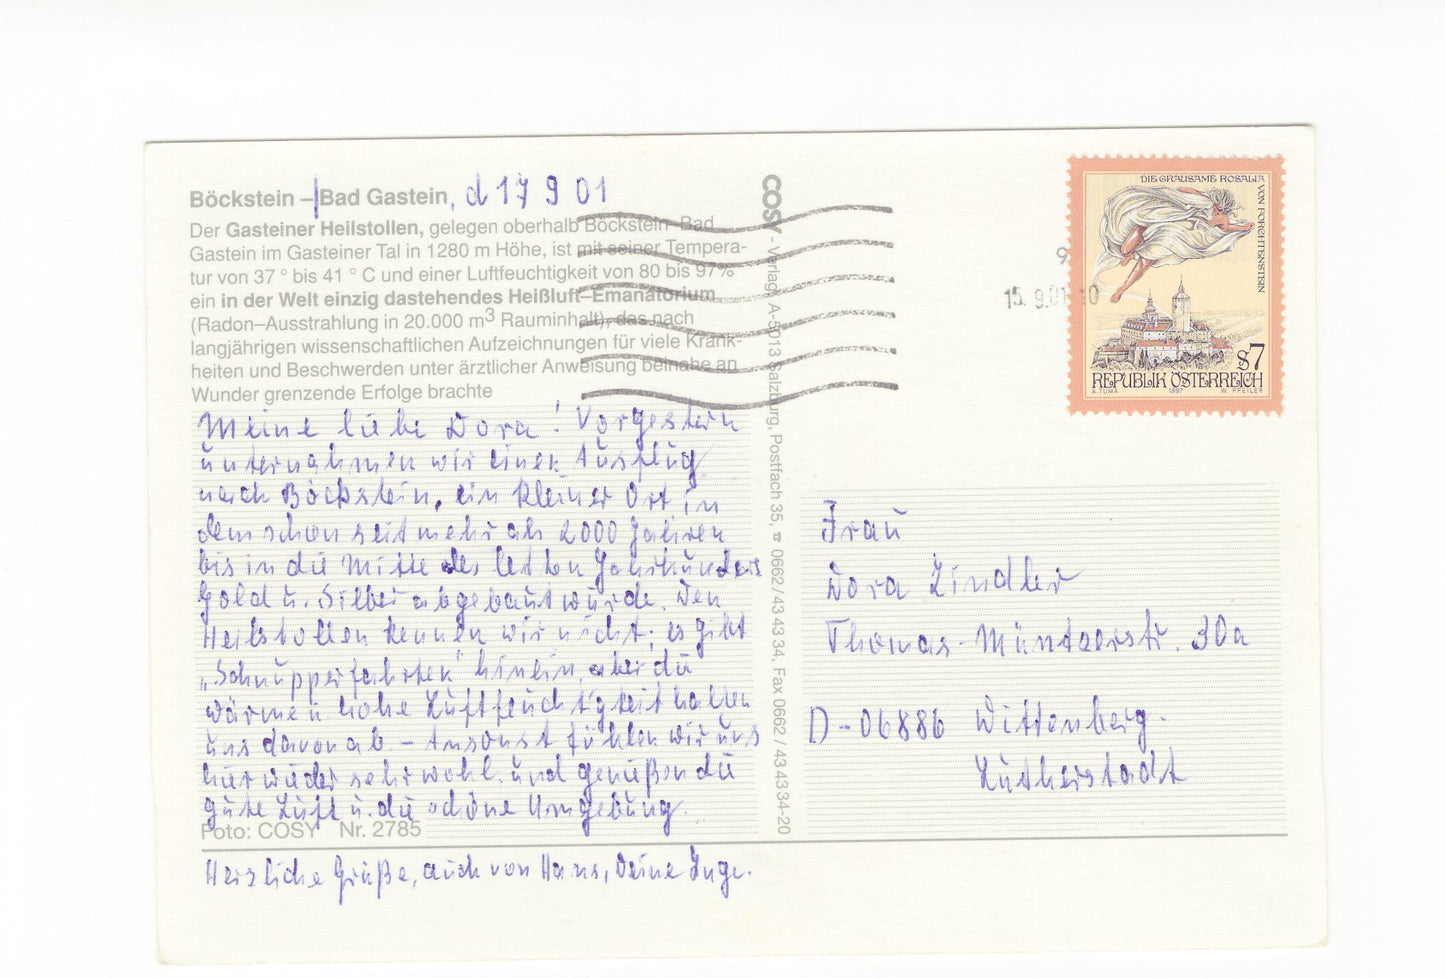 Böckstein – Bad Gastein, d 17 9 01
Der Gasteiner Heilstollen, gelegen oberhalb Böckstein-Bad
Gastein im Gasteiner Tal in 1280 m Höhe, ist mit seiner Tempera-
tur von 37 ° bis 41 ° C und einer Luftfeuchtigkeit von 80 bis 97%
ein in der Welt einzig dastehendes Heißluft–Emanatorium
(Radon–Ausstrahlung in 20.000 m³ Rauminhalt), das nach
langjährigen wissenschaftlichen Aufzeichnungen für viele Krank-
heiten und Beschwerden unter ärztlicher Anweisung beinahe an
Wunder grenzende Erfolge brachte
Meine liebe Dora! Vorgestern
unternahmen wir einen Ausflug
nach Böckstein, ein kleiner Ort in
dem schon seit mehr als 2000 Jahren
bis in die Mitte des letzten Jahrhunderts
Gold u. Silber abgebaut wurde. Den
Heilstollen kennen wir nicht; es gibt
„Schnupperfahrten" hinein, aber die
Wärme u. hohe Luftfeuchtigkeit halten
uns davon ab – Ansonst fühlen wir uns
hier wieder sehr wohl und genießen die
gute Luft u. die schöne Umgebung.
Foto: COSY Nr. 2785
Herzliche Grüße, auch von Hans, Deine Inge.
COSY - Verlag, A-5013 Salzburg, Postfach 35, ☎ 0662 / 43 43 34, Fax 0662 / 43 43 34-20
15. 9.01
DIE GRAUSAME ROSALIA
VON FORCHTENSTEIN
S7
REPUBLIK ÖSTERREICH
A. TUMA 1997 W. PFEILER
Frau
Dora Zindler
Thomas-Müntzerstr. 30a
D-06886 Wittenberg.
Lutherstadt